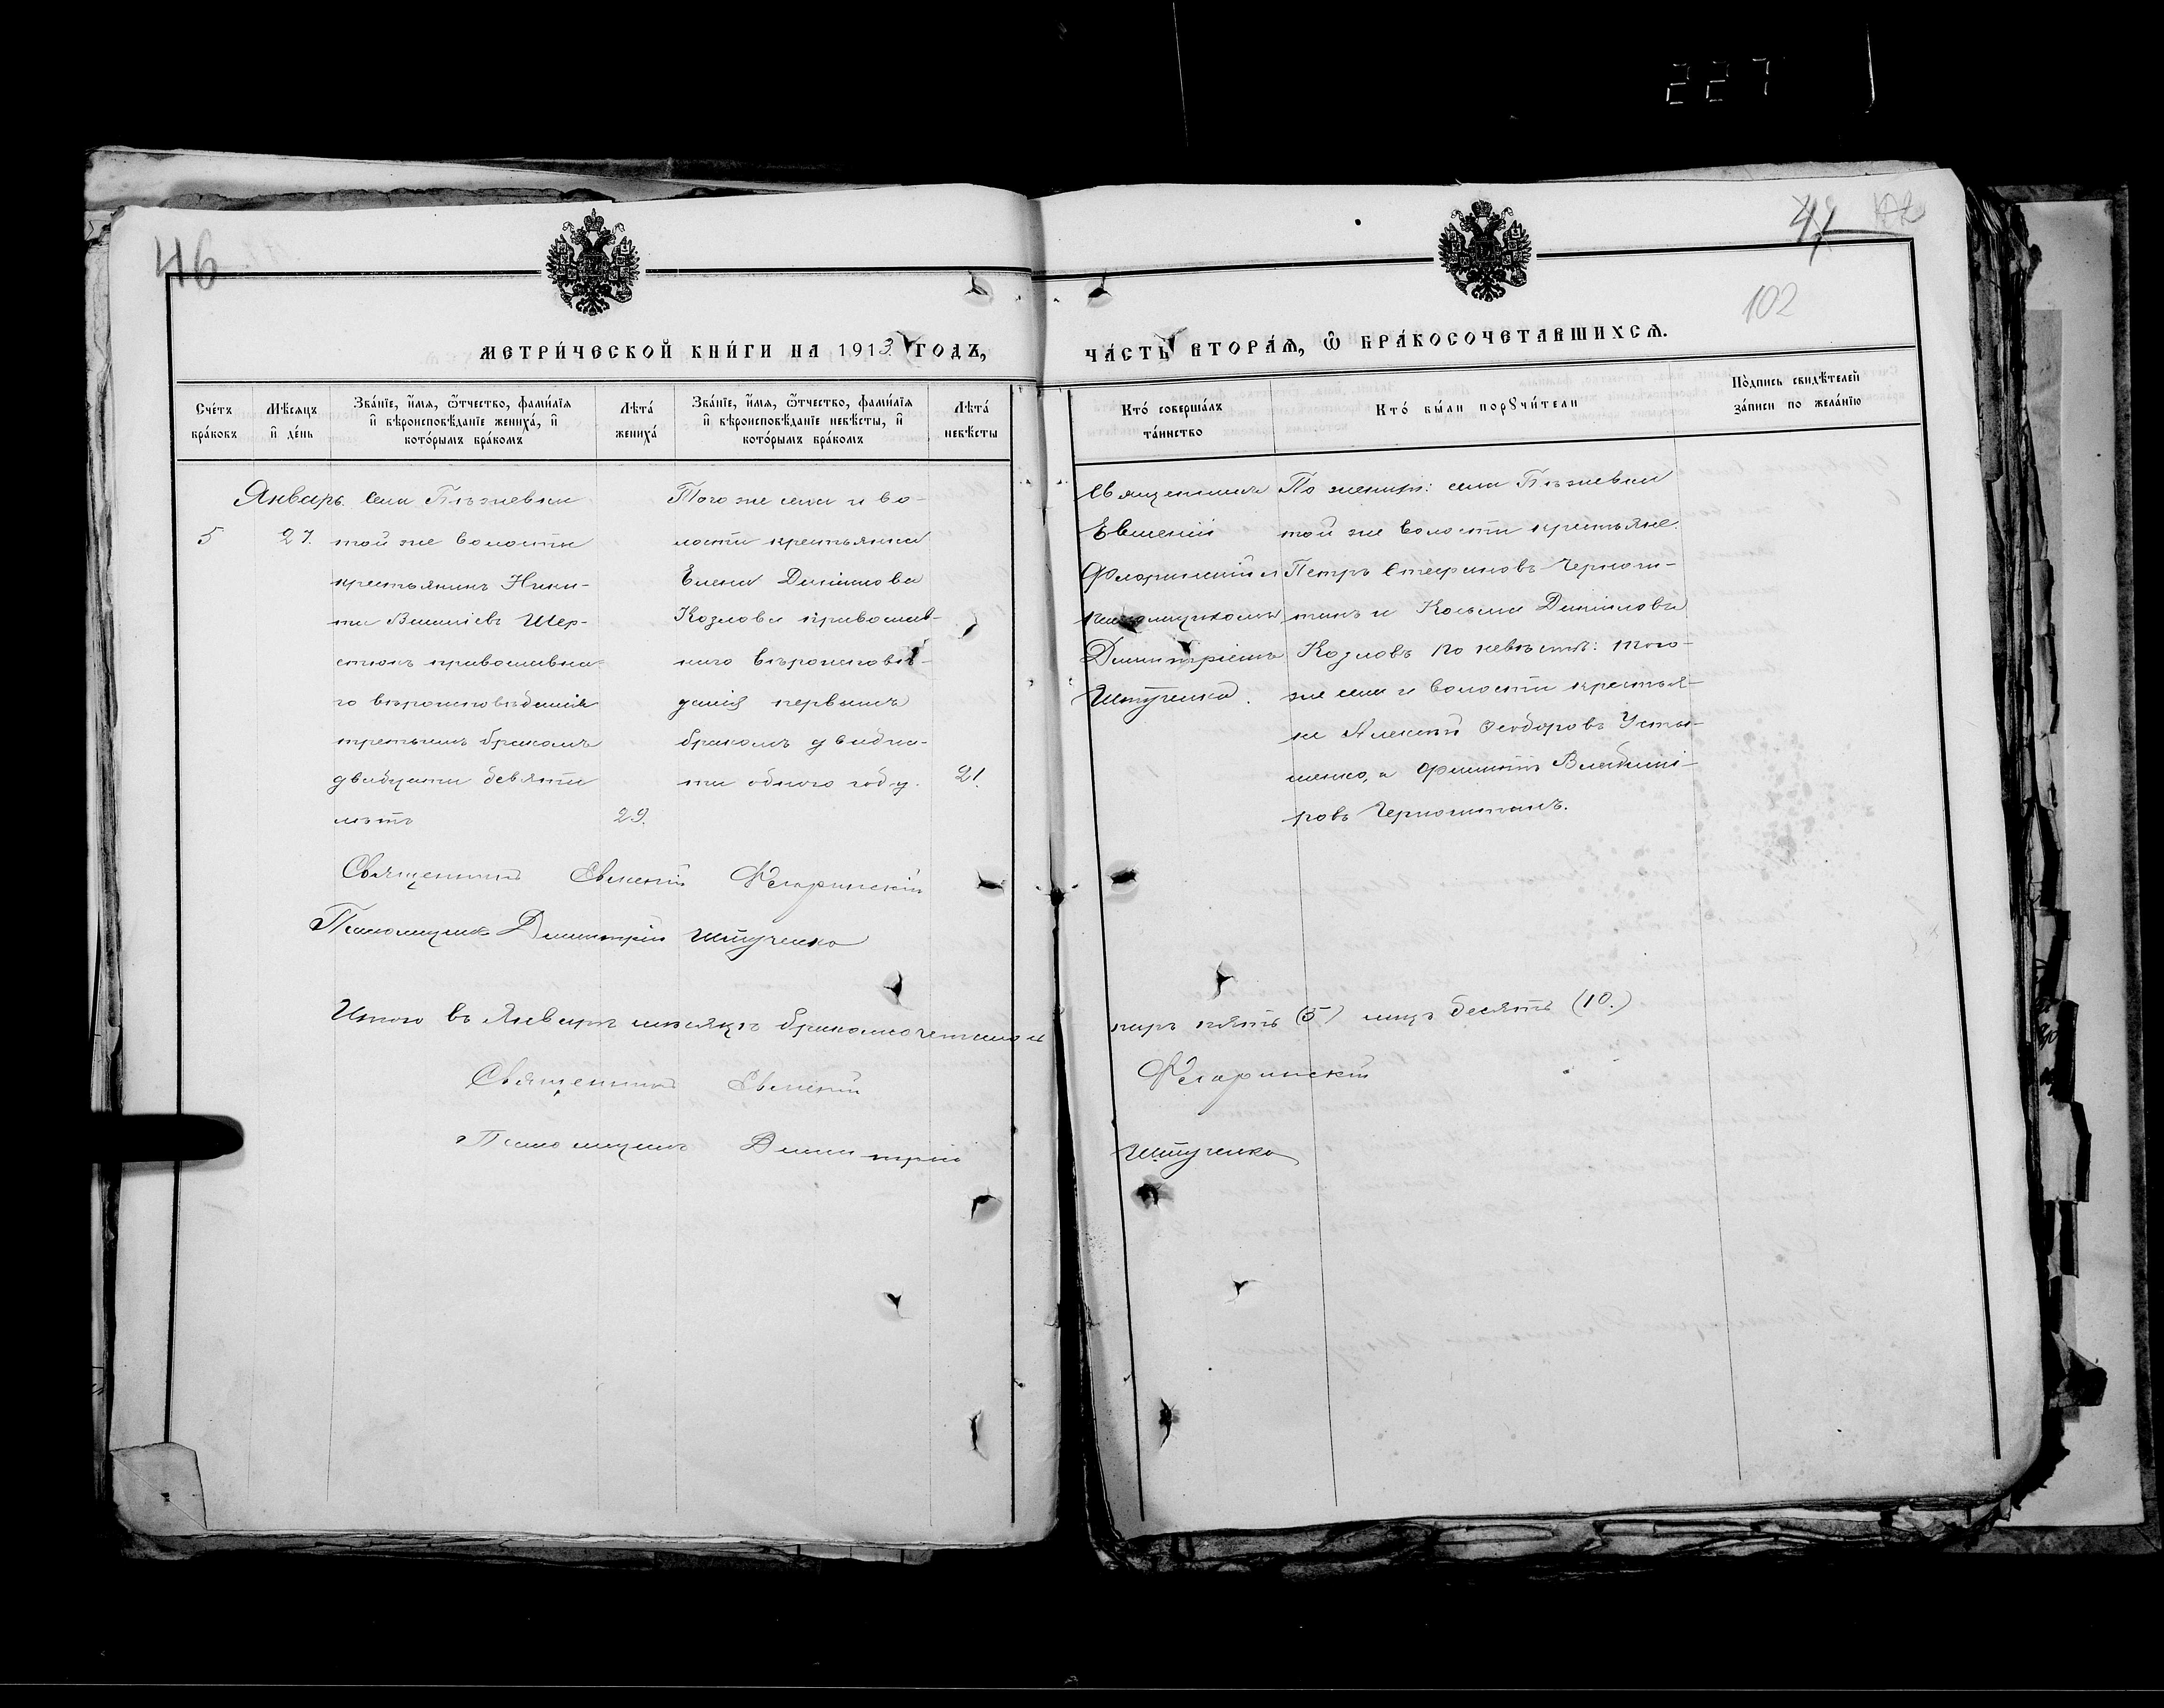 227
46
47
102
МЕТРИ́ЧЕСКОЙ КНИ́ГИ НА 1913 ГОДЪ,
ЧА́СТЬ ВТОРА́Ѧ, Ѡ҆ БРА́КОСОЧЕТАВШИХСѦ.
Сче́тъ бра́ковъ
Мѣ́сяцъ и҆ де́нь
Зва́нїе, и҆́мя, ѻ҆́тчество, фами́лїя и҆ вѣроисповѣ́данїе жениха́, и҆ кото́рымъ бра́комъ
Лѣта́ жениха́
Зва́нїе, и҆́мя, ѻ҆́тчество, фами́лїя и҆ вѣроисповѣ́данїе невѣ́сты, и҆ кото́рымъ бра́комъ
Лѣта́ невѣ́сты
Кто́ соверша́лъ та́инство
Кто́ бы́ли порꙋчи́тели
По́дпись свидѣ́телей за́писи по жела́нїю
Январь.
5
27.
села
той же волости
крестьянинъ Ники-
та Шер-
стюкъ православна-
го вѣроисповѣданія
третьимъ бракомъ
двадцати девяти
лѣтъ
29.
Того же села и во-
лости крестьянка
Елена Даніилова
Козлова православ-
наго вѣроисповѣ-
данія первымъ
бракомъ двадца-
ти одного году.
21.
Священникъ
Евгеній
съ
псаломщикомъ
Димитріемъ
Штученко.
По женихѣ: села
той же волости крестьяне
Петръ Стефановъ Черного-
и Косьма Даніиловъ
Козловъ по невѣстѣ: того-
же села и волости крестья-
не Алексѣй Ѳеодоровъ
и Владимі-
ровъ
Священникъ Евгеній
Псаломщикъ Димитрій Штученко
Итого въ Январѣ мѣсяцѣ бракосочеталось
паръ пять (5) лицъ десять (10.)
Священникъ Евгеній
Псаломщикъ Димитрій
Штученко